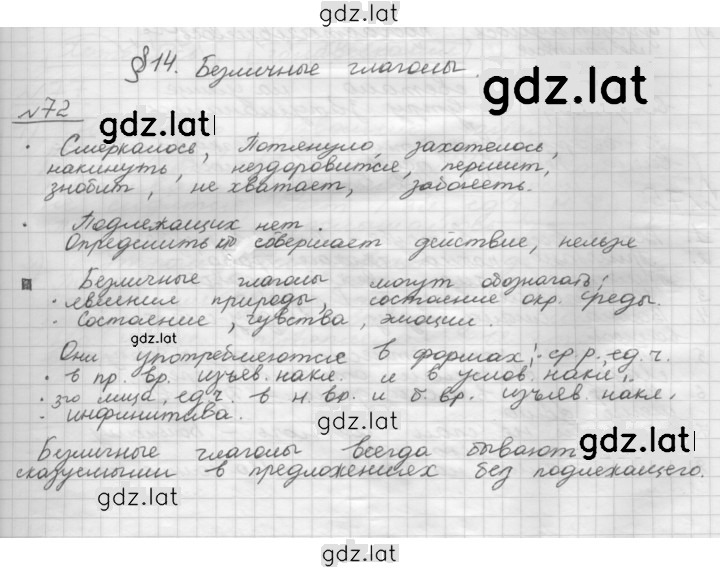 gdz.lat
§14. Безличные глаголы.
gdz.lat
№72
gdz.lat
· Смеркалось, Потянуло, захотелось,
накинуть, нездоровится, першит,
знобит, не хватает, заболеть.
· Подлежащих нет.
Определить кто совершает действие, нельзя
Безличные глаголы могут обозначать:
· явления природы, состояние окр. среды.
· Состояние, чувства, эмоции.
gdz.lat
Они употребляются в формах: · ср.р., ед.ч.
· в пр. вр. изъяв. накл. и в услов. накл.;
· 3го лица, ед.ч. в н. вр. и б. вр. изъяв. накл.
· инфинитива.
gdz.lat
gdz.lat
Безличные глаголы всегда бывают
сказуемыми в предложениях без подлежащего.
gdz.lat
gdz.lat